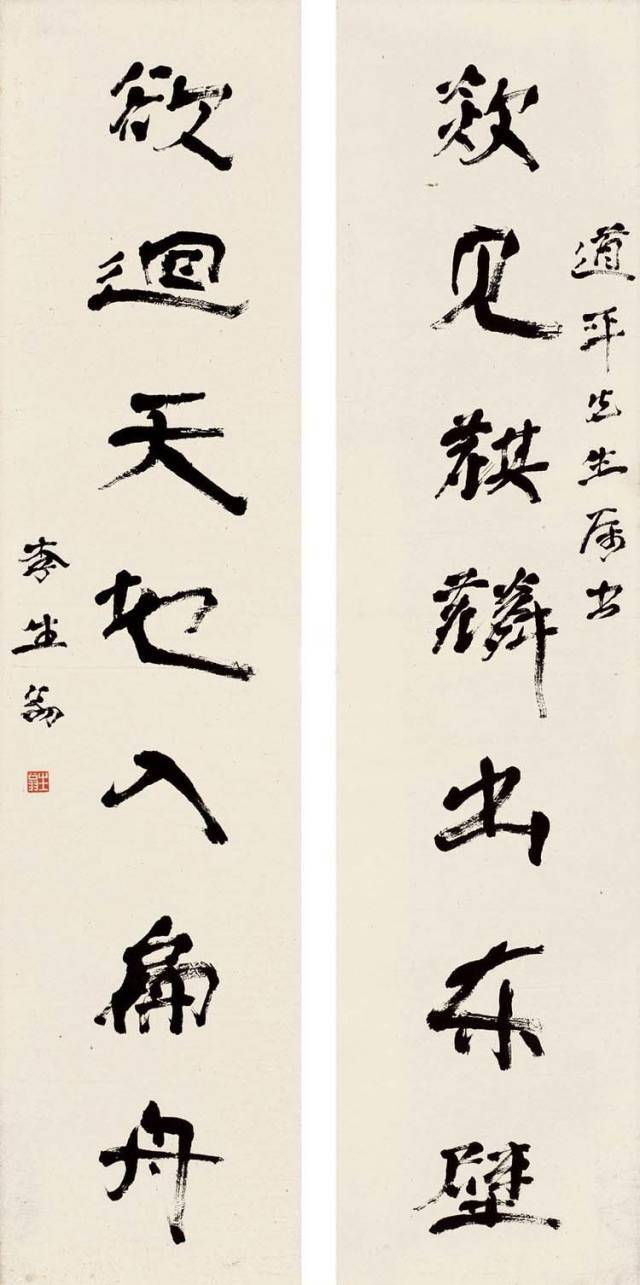 欻见麒麟出东壁
道平先生属书
欲迴天地入扁舟
李生翁
生翁